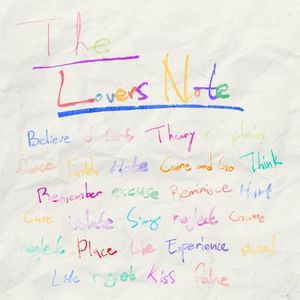 The
Lovers Note
Believe disturb Theory complain
Dance Faith Hate Come and Go Think
Remember excuse Reminisce Hurt
Care isolate Sings neglect Game
neglect Place Lie Experience
Life regret Kiss fake